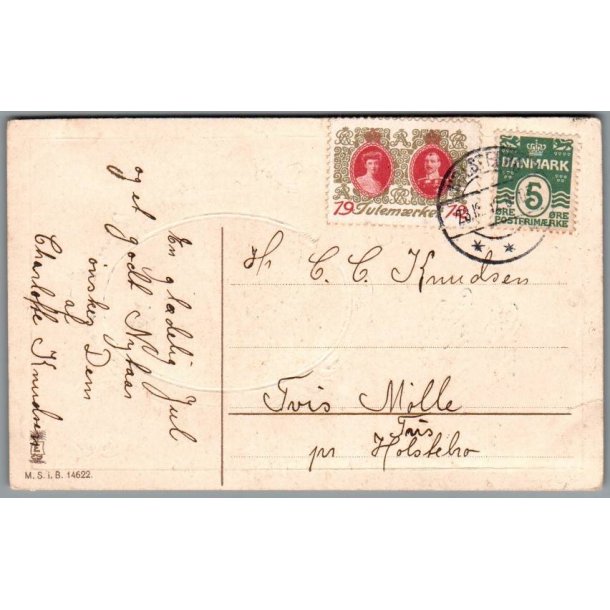 En glædelig Jul
og et godt Nytaar
ønskes Dem
af
Charlotte Knudsen
M. S. i. B. 14622.
19 Julemærke 13
DANMARK
5
ØRE ØRE
POSTFRIMÆRKE
Hr C. C. Knudsen
Tvis Mølle
Tvis
pr Holstebro